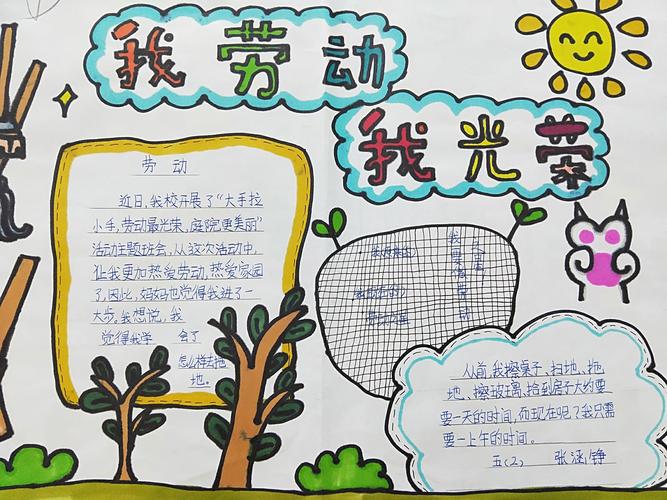 我劳动
我光荣
劳动
近日,我校开展了“大手拉
小手,劳动最光荣,庭院更美丽”
活动主题班会,从这次活动中,
让我更加热爱劳动,热爱家园
了,因此,妈妈也觉得我进了一
大步。我想说,我
觉得我学会了
怎么样去拖
地。
从前,我擦桌子、扫地、拖
地、擦玻璃,拾到房子大约要
要一天的时间,而现在呢?我只需
要一上午的时间。
五(2) 张涵铮